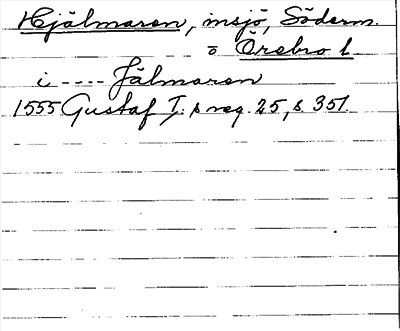 Hjälmaren, insjö, Söderm.
o Örebro l.
i ---- Jälmaren
1555 Gustaf I:s reg. 25, s. 351.